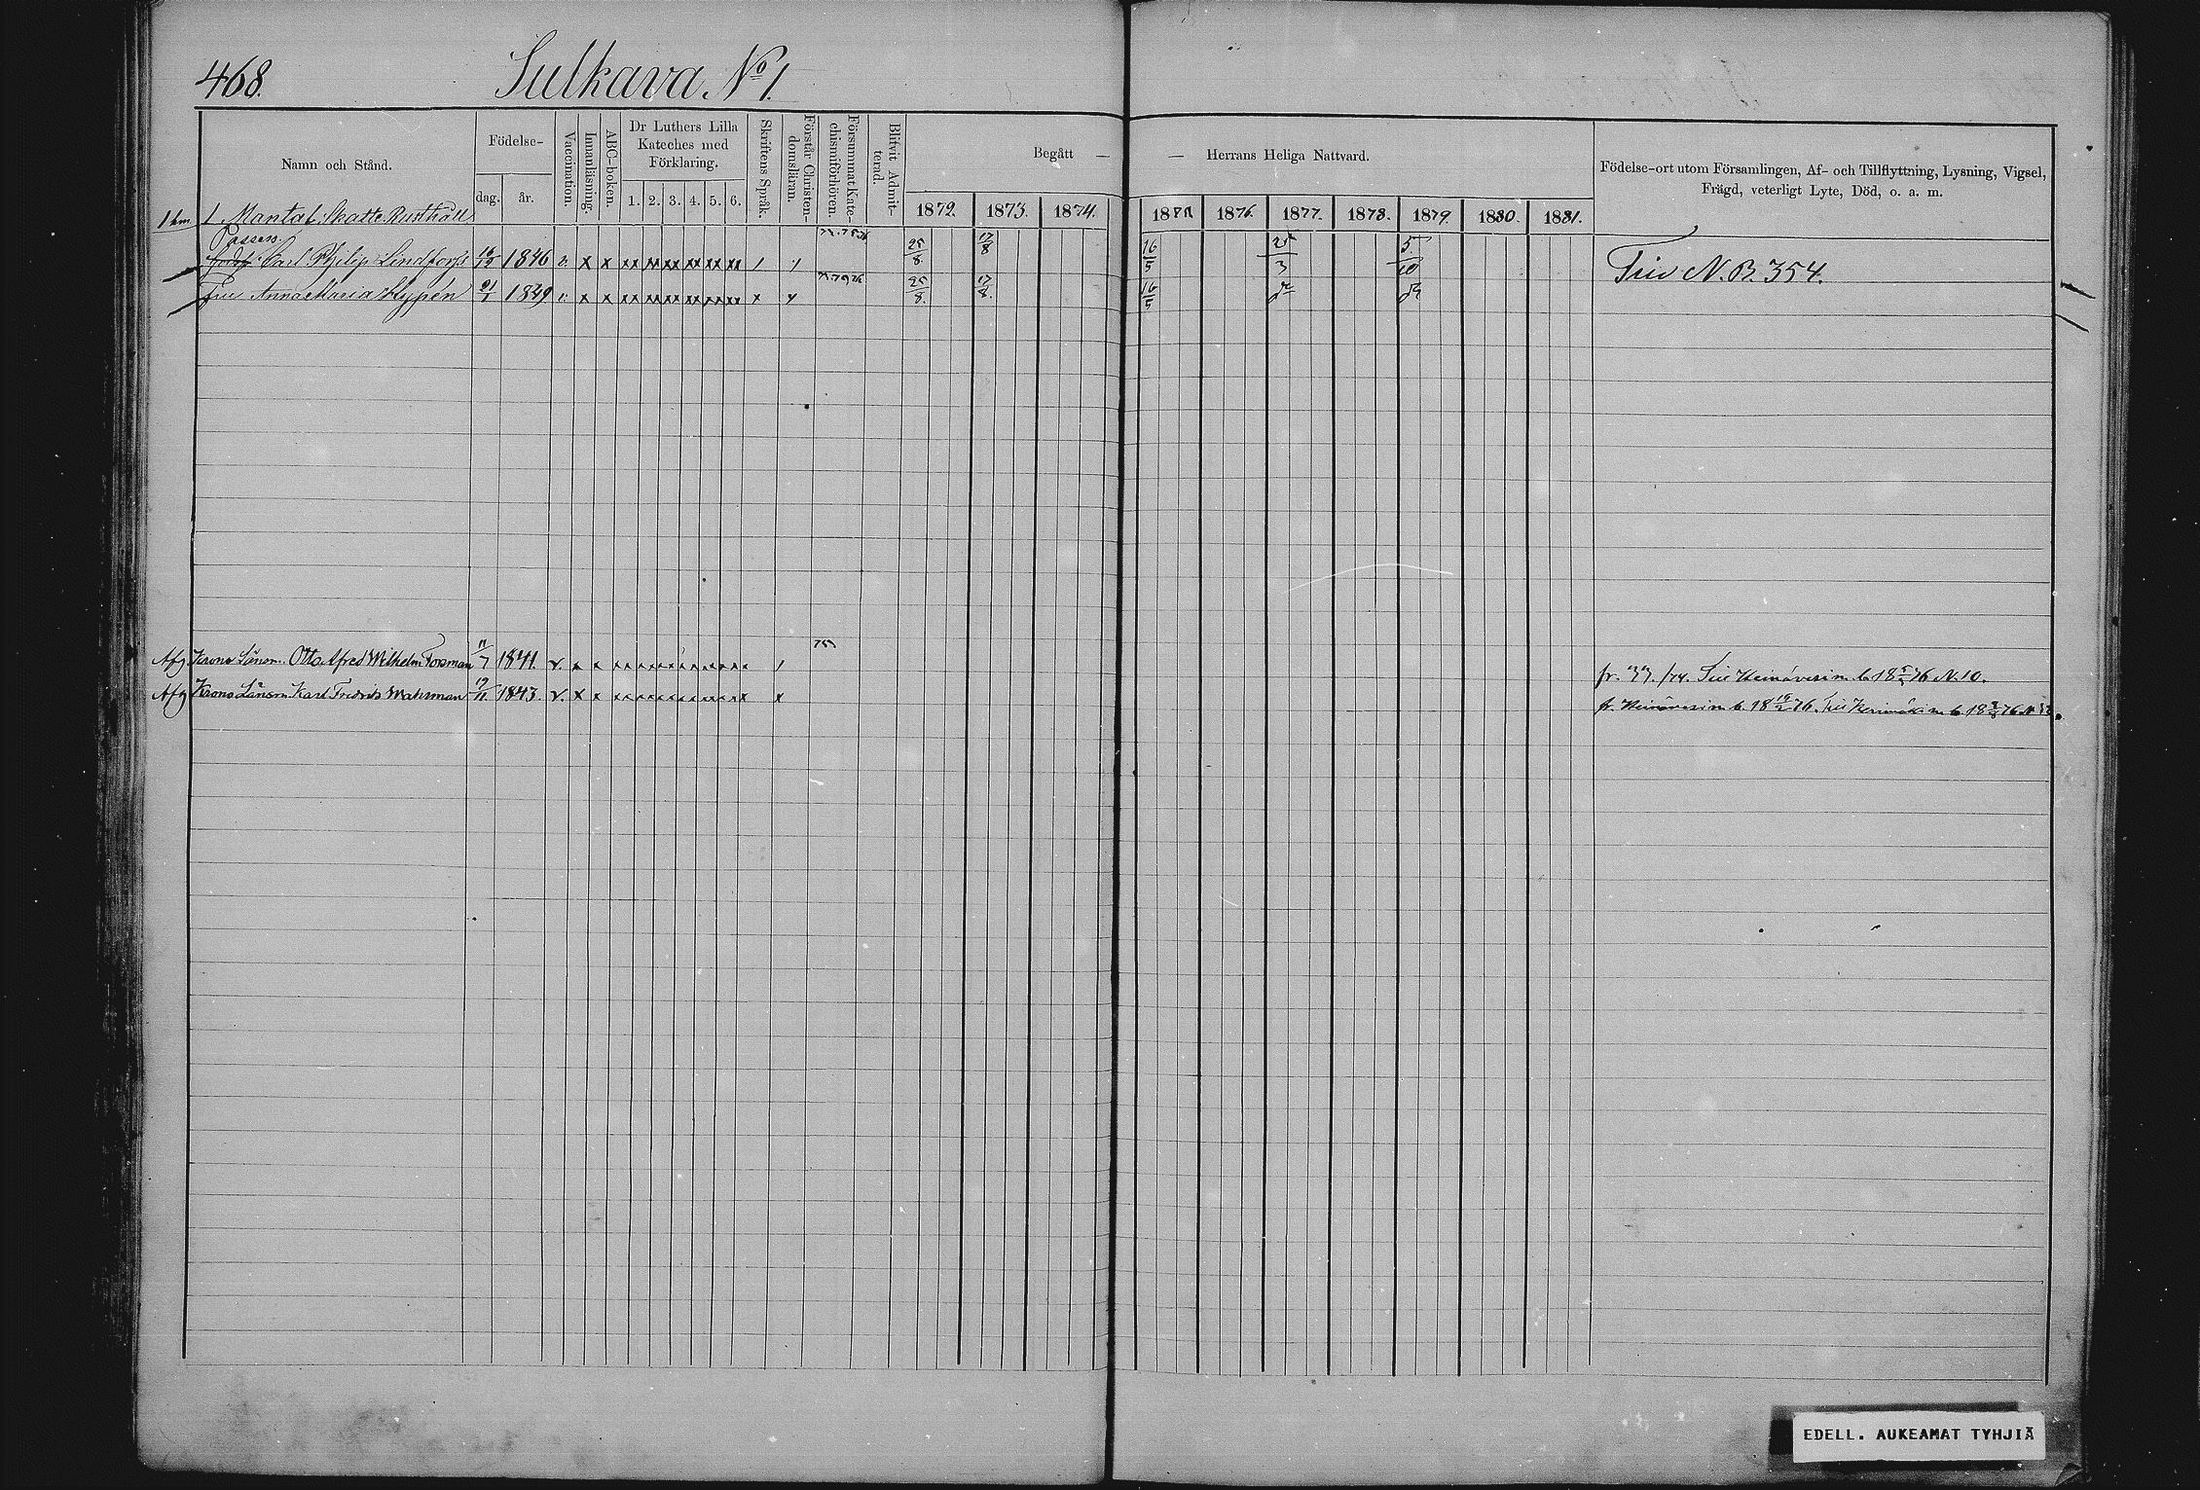 468. Sulkava No 1.
Namn och Stånd.
Födelse-
dag. år.
Vaccination.
Innanläsning.
ABC-boken.
Dr Luthers Lilla Kateches med Förklaring.
1. 2. 3. 4. 5. 6.
Skriftens Språk.
Förstår Christen-domsläran.
Försummat Kate-chismiförhören.
Blifvit Admit-terad.
Begått — — Herrans Heliga Nattvard.
1872. 1873. 1874. 1876. 1877. 1878. 1879. 1880. 1881.
Födelse-ort utom Församlingen, Af- och Tillflyttning, Lysning, Vigsel,
Frägd, veterligt Lyte, Död, o. a. m.
1 Mantal Skatte Rusthåll
Carl Philip Lindfors 1846 v. x x xx xx xx xx xx xx 25/8 17/8 16/5 5/10 Till N. B. 354.
Fru Anna Maria Hypén 21/1 1849 v. x x xx xx xx xx xx xx x x 25/8. 17/8. 16/5
Afg Krono Länsm. Otto Alfred Wilhelm Forsman 11/7 1841. v. x x
fr. 77./74. Till Heinävesi m. b. 18 76 N. 10.
Afg Krono Länsm Karl Fredrik Wahrman 1843. v. x x
fr. Heinävesi m. b. 18 76. Till Kerimäki m. b. 18 76 N
EDELL. AUKEAMAT TYHJIÄ